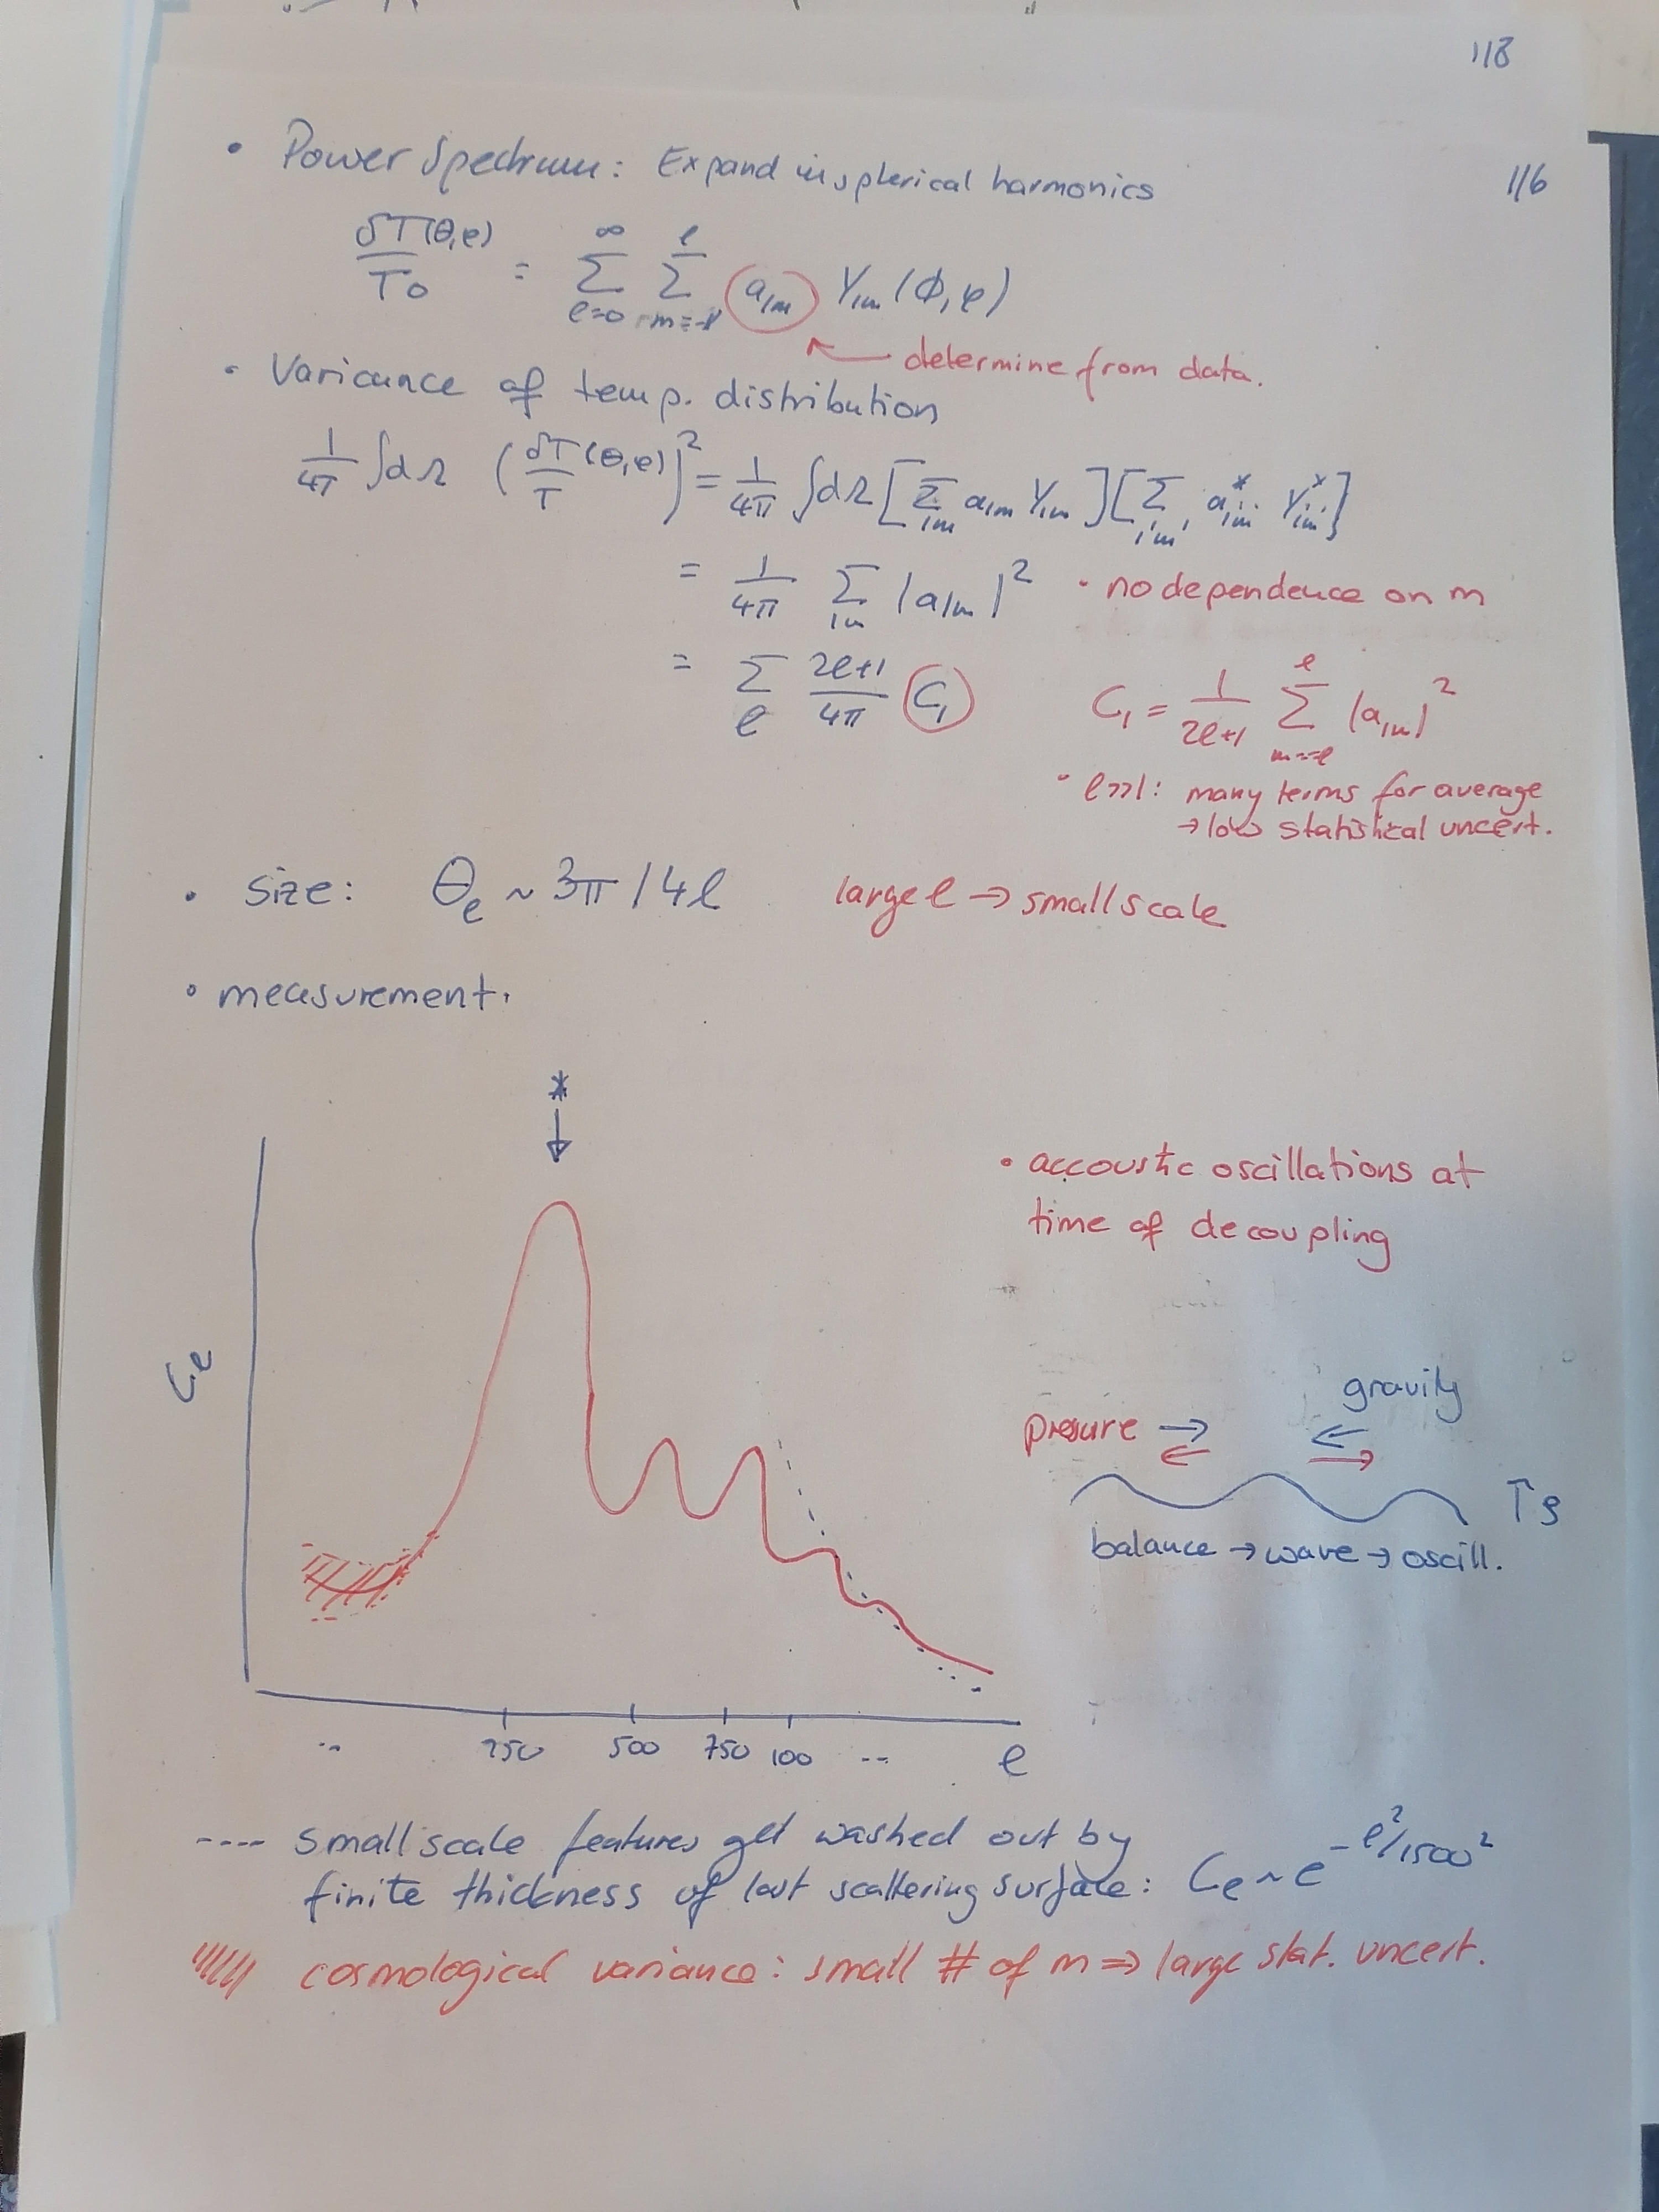 118
116
• Power Spectrum: Expand in spherical harmonics
δT(θ,φ)/T₀ = ∑_{ℓ=0}^{∞} ∑_{m=-ℓ}^{ℓ} a_{lm} Y_{lm}(ϕ,φ)
determine from data.
• Variance of temp. distribution
1/4π ∫dΩ (δT/T (θ,φ))² = 1/4π ∫dΩ [∑_{lm} a_{lm} Y_{lm}][∑_{l'm'} a*_{l'm'} Y*_{l'm'}]
= 1/4π ∑_{lm} |a_{lm}|² • no dependence on m
= ∑_ℓ (2ℓ+1)/4π C_l C_l = 1/(2ℓ+1) ∑_{m=-ℓ}^{ℓ} |a_{lm}|²
• ℓ>>1: many terms for average
→ low statistical uncert.
• size: θ_ℓ ~ 3π/4ℓ large ℓ → small scale
• measurement.
*
↓
• accoustic oscillations at
time of decoupling
C_ℓ
gravity
presure → ←
← →
↑ ρ
balance → wave → oscill.
.. 250 500 750 100 -- ℓ
---- small scale features get washed out by
finite thickness of last scattering surface: C_ℓ ~ e^{-ℓ²/1500²}
cosmological variance: small # of m ⇒ large stat. uncert.